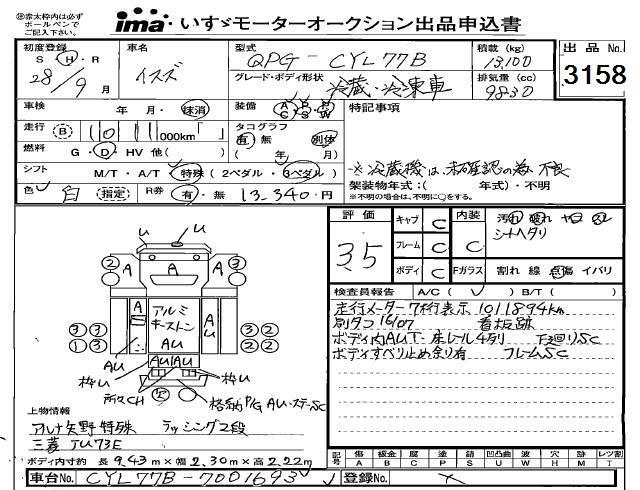 ※赤太枠内は必ず
ボールペンで
ご記入下さい。
ima いすゞモーターオークション出品申込書
初度登録 S・H・R 28/9月
車名 イスズ
型式 QPG-CYL77B
積載 (kg) 13,100
出品No. 3158
グレード・ボディ形状 冷蔵・冷凍車
排気量 (cc) 9830
車検 年・月・抹消
装備
特記事項
走行 (B) 000km
タコグラフ 有・無 別体
燃料 G・D・HV 他( )
( 年 月)
※冷蔵機は、未確認の為 不良
シフト M/T・A/T・特殊 (2ペダル・3ペダル)
架装物年式:( 年式)・不明
※不明の場合は、不明に○をする。
色 白 (指定) R券 有・無 13,340円
評価 3.5
キャブ C
内装 C
汚れ
シートヘタリ
フレーム C
ボディ C
Fガラス 割れ 線 点傷 イバリ
検査員報告 A/C( ) B/T( )
走行メーター7桁表示 1011894km
別タコ16/07 看板跡
ボディ内AU T:床レール4列 下廻りSC
ボディすべり止め余り有 フレームSC
U
U
2 A A A 3
2 3
アルミ
キーストン
A
A
U
AU
3 3 2 2
1 3 2 2
AU
AUAU
枠U
枠U
所々CH
格納P/G AU・ステーSC
上物情報
アルナ矢野特殊 ラッシング2段
三菱 TU73E
ボディ内寸約 長 9.43m×幅 2.30m×高 2.22m
記号 傷 A 板金 B 腐 C 塗 P 錆 S 凹凸曲 U 波 W 穴 H 跡 M レツ割 T
車台No. CYL77B-7001693
登録No.